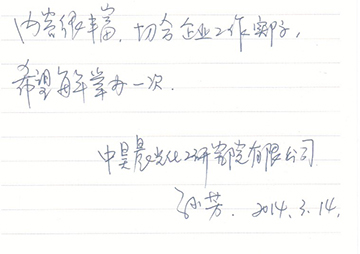 内容很丰富，切合企业工作实际，
希望每年举办一次.
中昊晨光化工研究院有限公司
孙芳. 2014.3.14.